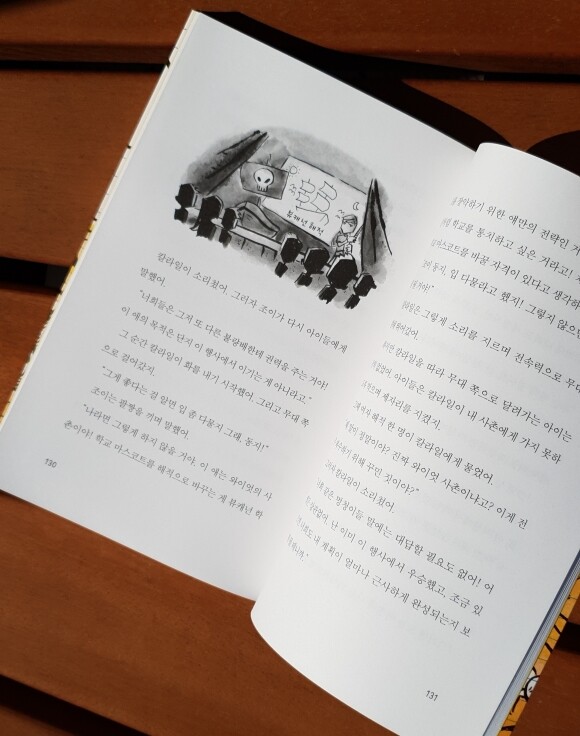 뷰캐넌 해적
칼라일이 소리쳤어. 그러자 조이가 다시 아이들에게
말했어.
"너희들은 그저 또 다른 불량배한테 권력을 주는 거야!
이 애의 목적은 단지 이 행사에서 이기는 게 아니라고."
그 순간 칼라일이 화를 내기 시작했어, 그리고 무대 쪽
으로 걸어갔지.
"그게 좋다는 걸 알면 입 좀 다물지 그래, 동지!"
조이는 팔짱을 끼며 말했어.
"나라면 그렇게 하지 않을 거야. 이 애는 와이엇의 사
촌이야! 학교 마스코트를 해적으로 바꾸는 게 뷰캐넌 학
130
장악하기 위한 얘만의 전략인 거
학교를 통치하고 싶은 거라고!
마스코트를 바꿀 자격이 있다고 생각하
동지, 입 다물라고 했지! 그렇지 않으면
거야!"
그렇게 소리를 지르며 전속력으로 무대
칼라일을 따라 무대 쪽으로 달려가는 아이는
아이들은 칼라일이 내 사촌에게 가지 못하
제자리를 지켰지.
해적 한 명이 칼라일에게 물었어.
정말이야? 진짜 와이엇 사촌이냐고? 이게 전
위해 꾸민 짓이야?"
칼라일이 소리쳤어.
같은 멍청이들 말에는 대답할 필요도 없어! 어
난 이미 이 행사에서 우승했고, 조금 있
내 계획이 얼마나 근사하게 완성되는지 보
131